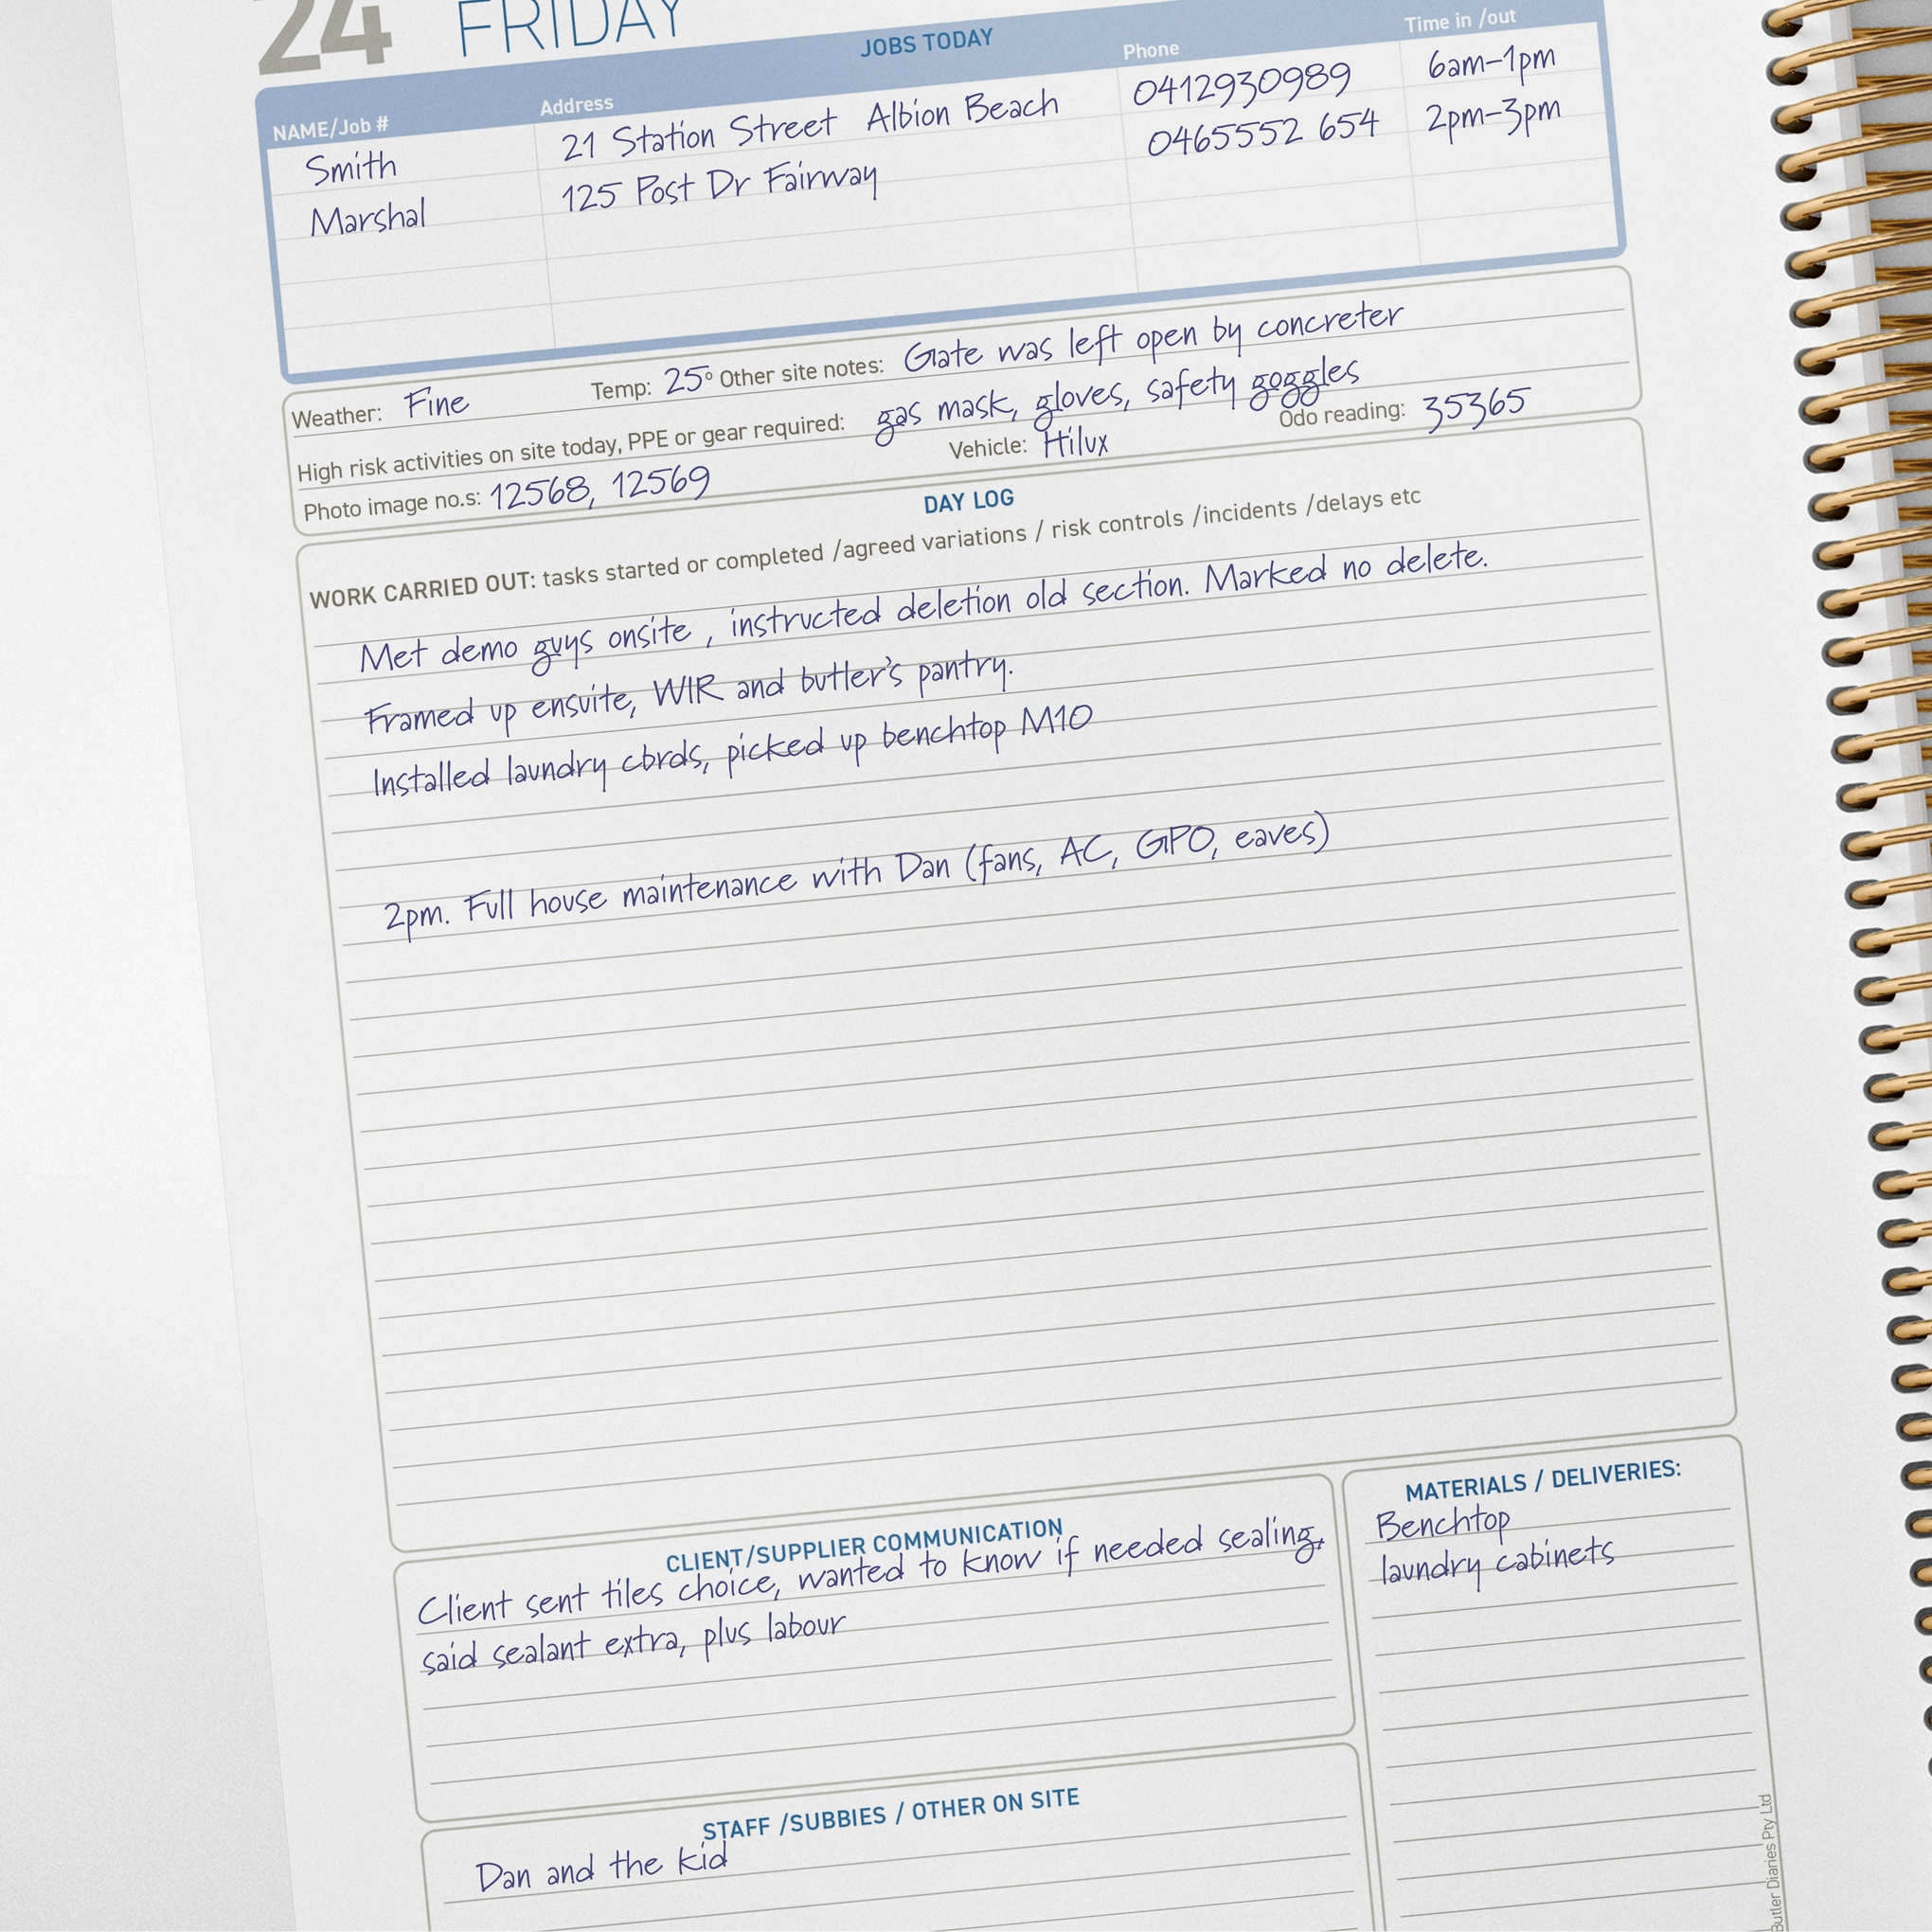 24 FRIDAY
JOBS TODAY
NAME/Job # Address Phone Time in /out
Smith 21 Station Street Albion Beach 0412930989 6am-1pm
Marshal 125 Post Dr Fairway 0465552 654 2pm-3pm
Weather: Fine Temp: 25° Other site notes: Gate was left open by concreter
High risk activities on site today, PPE or gear required: gas mask, gloves, safety goggles
Photo image no.s: 12568, 12569 Vehicle: Hilux Odo reading: 35365
DAY LOG
WORK CARRIED OUT: tasks started or completed /agreed variations / risk controls /incidents /delays etc
Met demo guys onsite , instructed deletion old section. Marked no delete.
Framed up ensuite, WIR and butler's pantry.
Installed laundry cbrds, picked up benchtop M10
2pm. Full house maintenance with Dan (fans, AC, GPO, eaves)
CLIENT/SUPPLIER COMMUNICATION
Client sent tiles choice, wanted to know if needed sealing,
said sealant extra, plus labour
MATERIALS / DELIVERIES:
Benchtop
laundry cabinets
STAFF /SUBBIES / OTHER ON SITE
Dan and the kid
Butler Diaries Pty Ltd